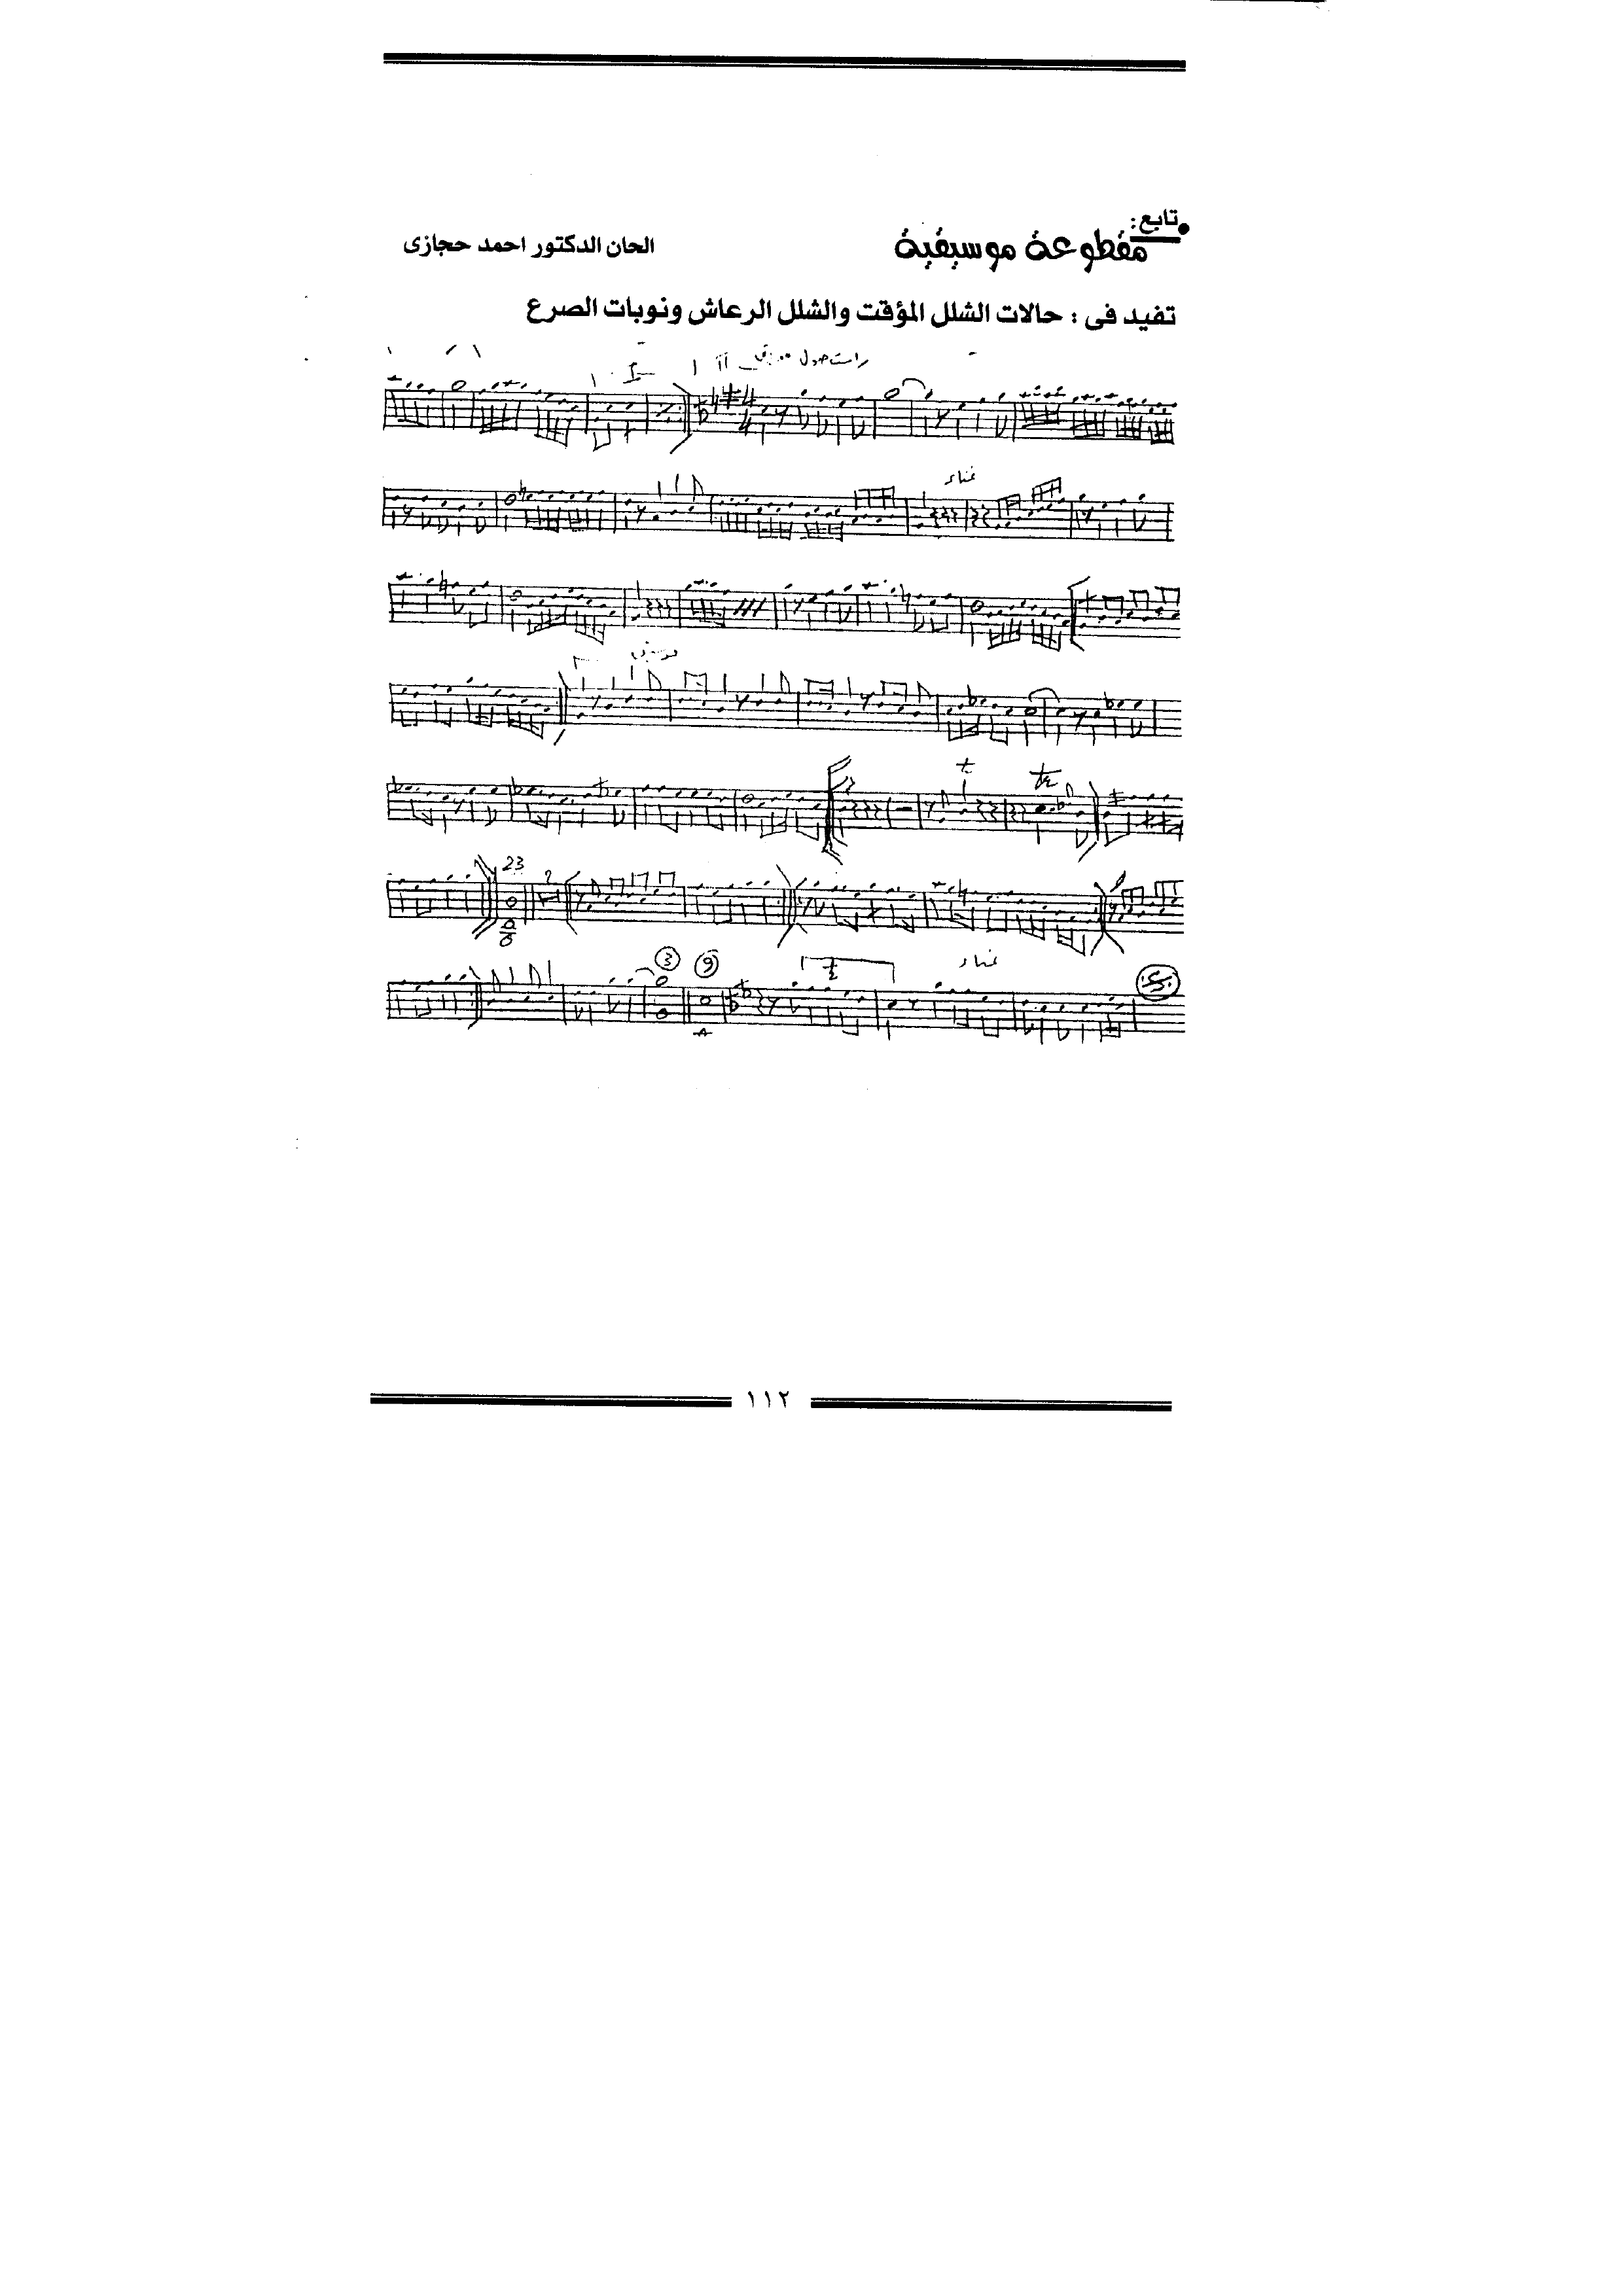 تابع:
مقطوعة موسيقية
الحان الدكتور احمد حجازى
تفيد فى : حالات الشلل المؤقت والشلل الرعاش ونوبات الصرع
راست
غناء
23
3
9
غناء
١١٢